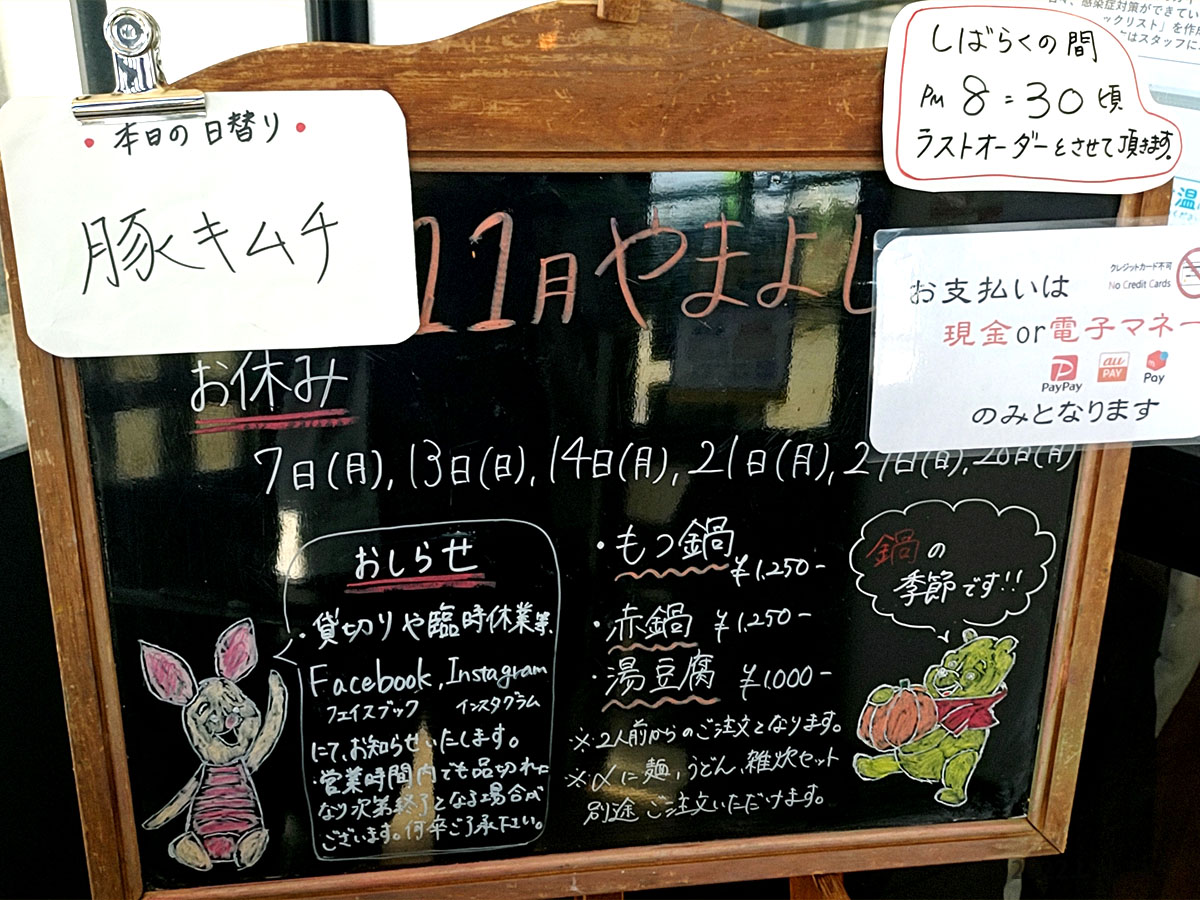 ・本日の日替り・
豚キムチ
しばらくの間
PM 8=30頃
ラストオーダーとさせて頂きます。
11月やまよし
クレジットカード不可
No Credit Cards
お支払いは
現金or電子マネー
PayPay
au PAY
Pay
のみとなります
お休み
7日(月),13日(日),14日(月),21日(月),27日(日),28日(月)
おしらせ
・貸切りや臨時休業等、
Facebook,Instagram
フェイスブック インスタグラム
にて、お知らせいたします。
・営業時間内でも品切れに
なり次第終了となる場合が
ございます。何卒ご了承下さい。
・もつ鍋
¥1,250-
・赤鍋 ¥1,250-
・湯豆腐 ¥1,000-
※2人前からのご注文となります。
※〆に麺,うどん、雑炊セット
別途ご注文いただけます。
鍋の
季節です!!
感染症対策ができてい
ックリスト」を作成
はスタッフに
温